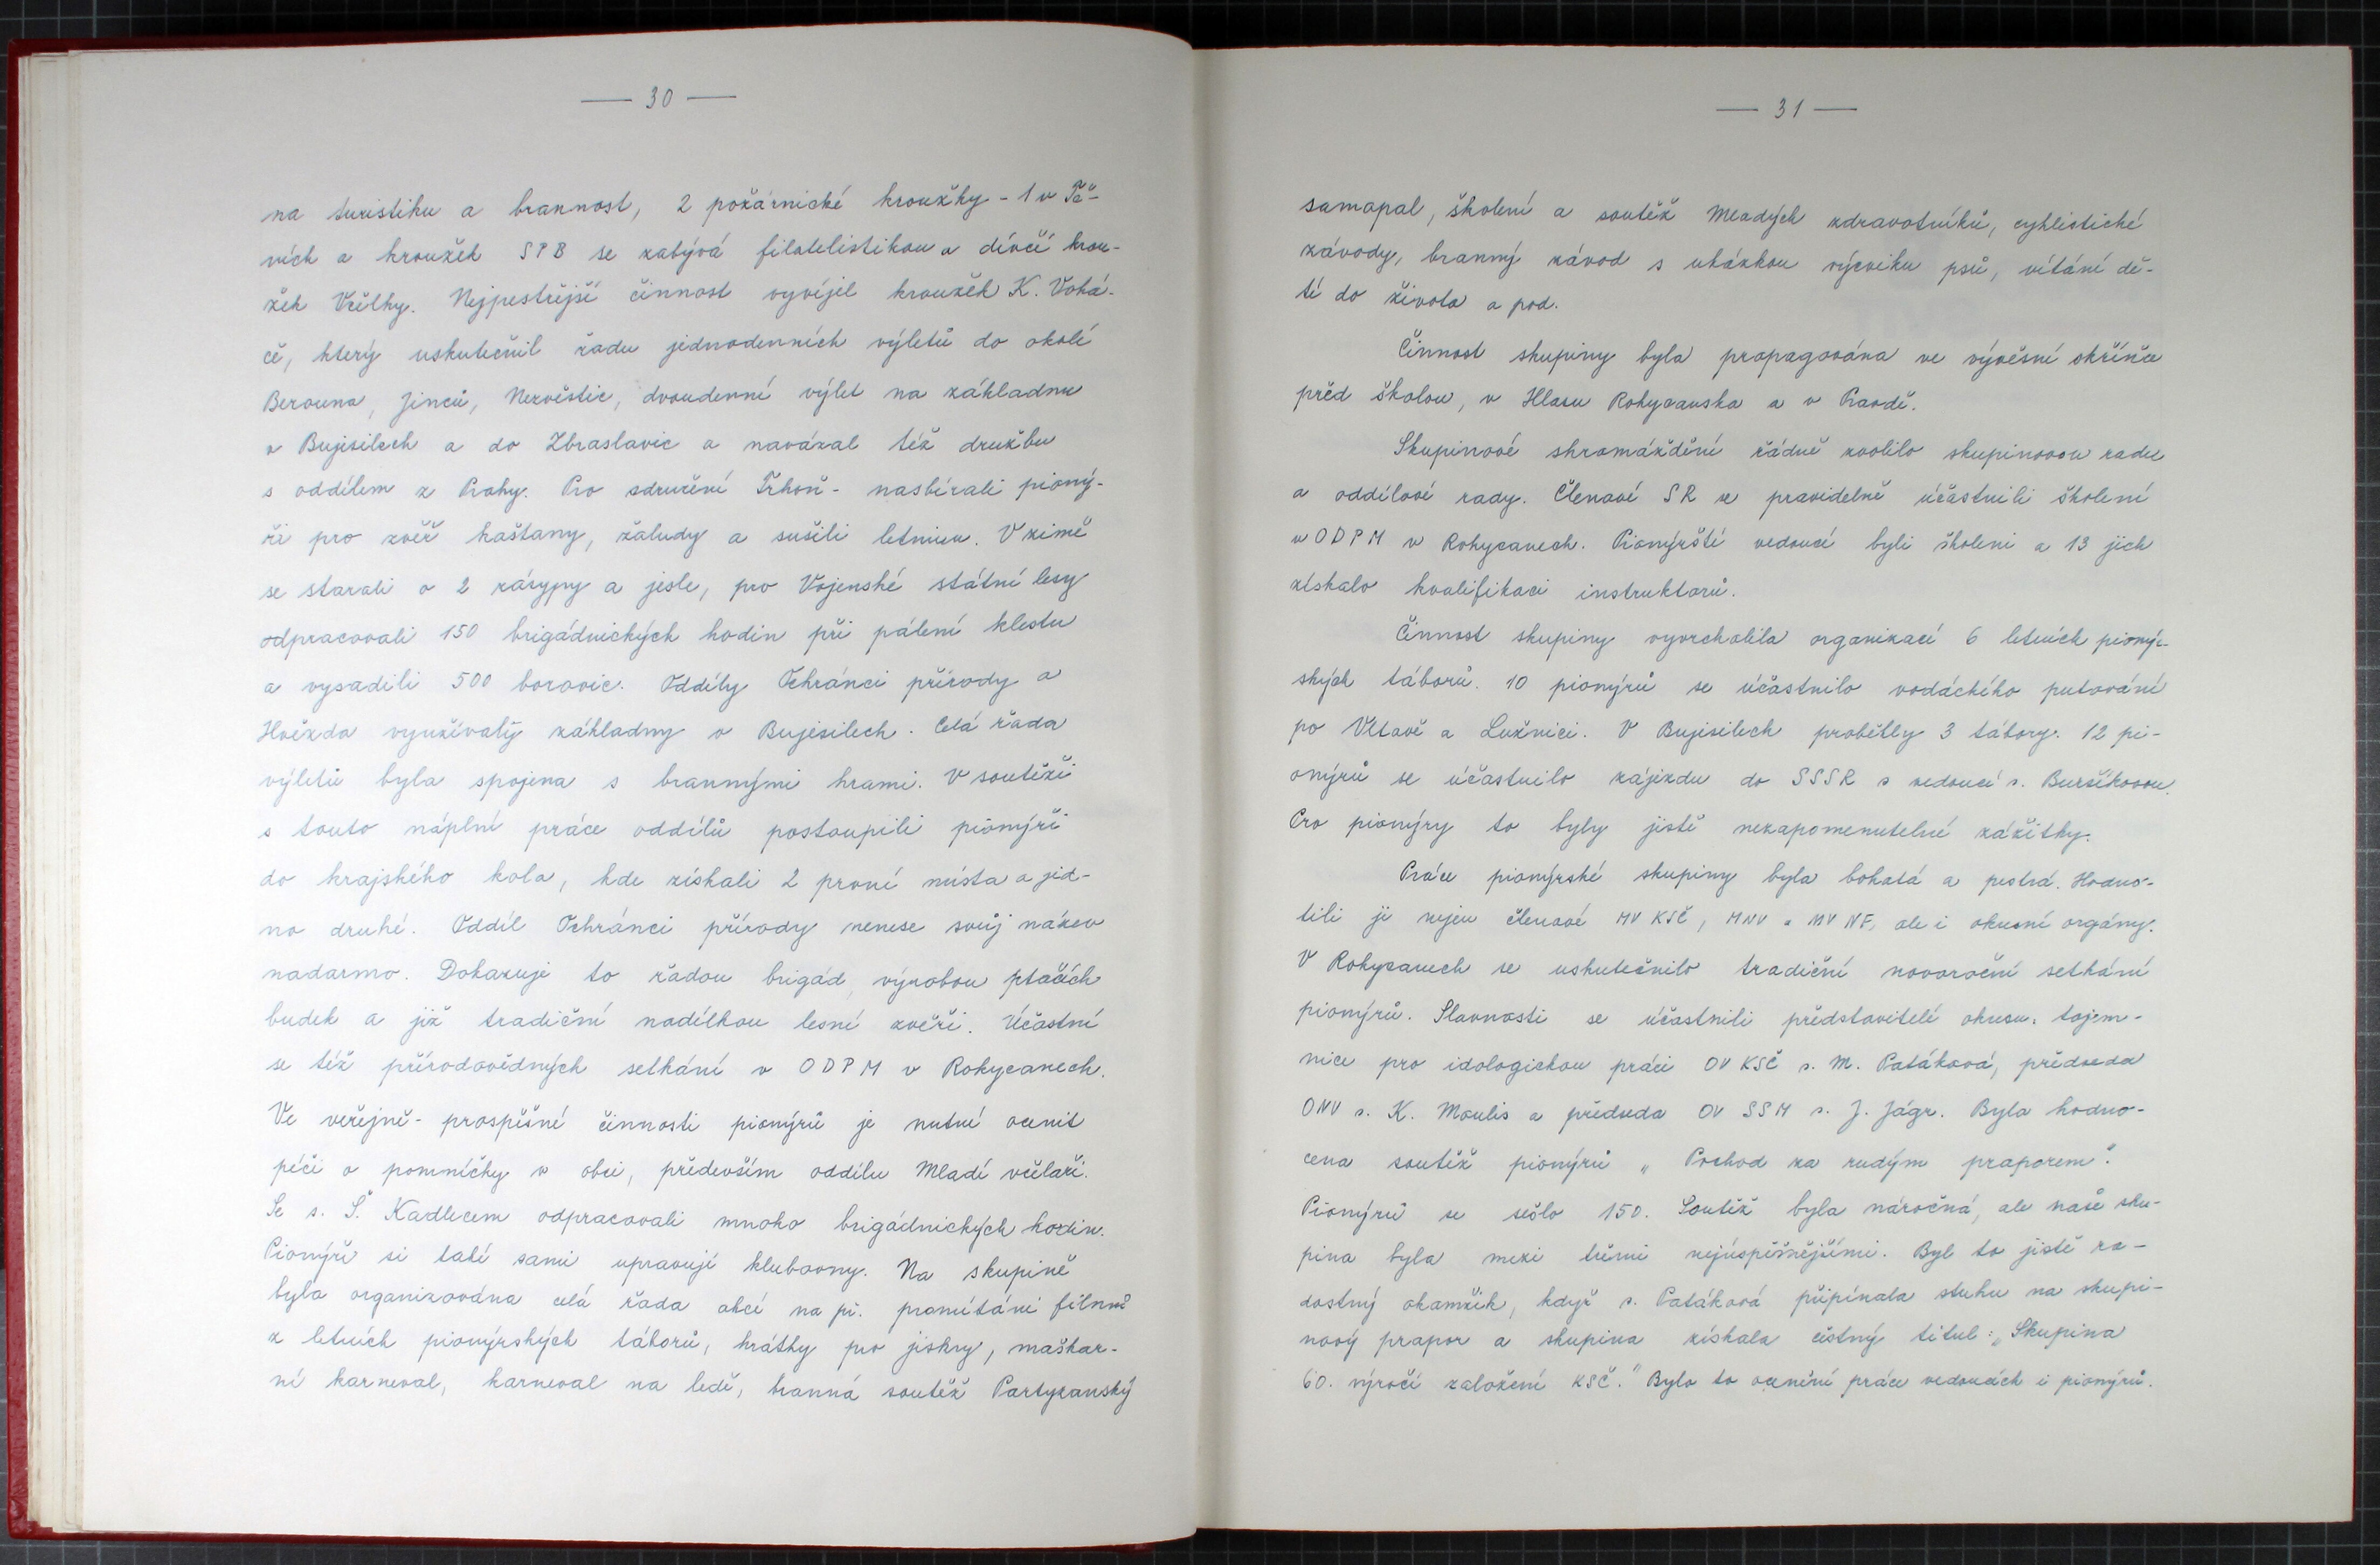 — 30 —
na turistiku a brannost, 2 požárnické kroužky - 1 v Tě-
ních a kroužek SPB se zabývá filatelistikou a dívčí krou-
žek Včelky. Nejpestřejší činnost vyvíjel kroužek K. Vohá-
če, který uskutečnil řadu jednodenních výletů do okolí
Berouna, Jinců, Nezvěstic, dvoudenní výlet na základnu
v Bujesilech a do Zbraslavic a navázal též družbu
s oddílem z Prahy. Pro sdružení Trhoň - nasbírali pioný-
ři pro zvěř kaštany, žaludy a sušili letninu. V zimě
se starali o 2 zásypy a jesle, pro Vojenské státní lesy
odpracovali 150 brigádnických hodin při pálení klestu
a vysadili 500 borovic. Oddíly Ochránci přírody a
Hvězda využívaly základny v Bujesilech. Celá řada
výletů byla spojena s brannými hrami. V soutěži
s touto náplní práce oddílů postoupili pionýři
do krajského kola, kde získali 2 první místa a jed-
no druhé. Oddíl Ochránci přírody nenese svůj název
nadarmo. Dokazuje to řadou brigád, výrobou ptačích
budek a již tradiční nadílkou lesní zvěři. Účastní
se též přírodovědných setkání v ODPM v Rokycanech.
Ve veřejně-prospěšné činnosti pionýrů je nutné ocenit
péči o pomníčky v obci, především oddílu Mladí včelaři.
Se s. Š. Kadlecem odpracovali mnoho brigádnických hodin.
Pionýři si také sami upravují klubovny. Na skupině
byla organizována celá řada akcí na př. promítání filmů
z letních pionýrských táborů, hrátky pro jiskry, maškar-
ní karneval, karneval na ledě, branná soutěž Partyzánský
— 31 —
samopal, školení a soutěž Mladých zdravotníků, cyklistické
závody, branný závod s ukázkou výcviku psů, vítání dě-
tí do života a pod.
Činnost skupiny byla propagována ve vývěsní skříňce
před školou, v Hlasu Rokycanska a v Pravdě.
Skupinové shromáždění řádně zvolilo skupinovou radu
a oddílové rady. Členové SR se pravidelně účastnili školení
v ODPM v Rokycanech. Pionýrští vedoucí byli školeni a 13 jich
získalo kvalifikaci instruktorů.
Činnost skupiny vyvrcholila organizací 6 letních pionýr-
ských táborů. 10 pionýrů se účastnilo vodáckého putování
po Vltavě a Lužnici. V Bujesilech proběhly 3 tábory. 12 pi-
onýrů se účastnilo zájezdu do SSSR s vedoucí s. Buršíkovou.
Pro pionýry to byly jistě nezapomenutelné zážitky.
Práce pionýrské skupiny byla bohatá a pestrá. Hodno-
tili ji nejen členové MV KSČ, MNV a MV NF, ale i okresní orgány.
V Rokycanech se uskutečnilo tradiční novoroční setkání
pionýrů. Slavnosti se účastnili představitelé okresu: tajem-
nice pro idologickou práci OV KSČ s. M. Patáková, předseda
ONV s. K. Moulis a předseda OV SSM s. J. Jágr. Byla hodno-
cena soutěž pionýrů „Pochod za rudým praporem".
Pionýrů se sešlo 150. Soutěž byla náročná, ale naše sku-
pina byla mezi třemi nejúspěšnějšími. Byl to jistě ra-
dostný okamžik, když s. Patáková připínala stuhu na skupi-
nový prapor a skupina získala čestný titul: „Skupina
60. výročí založení KSČ." Bylo to ocenění práce vedoucích i pionýrů.